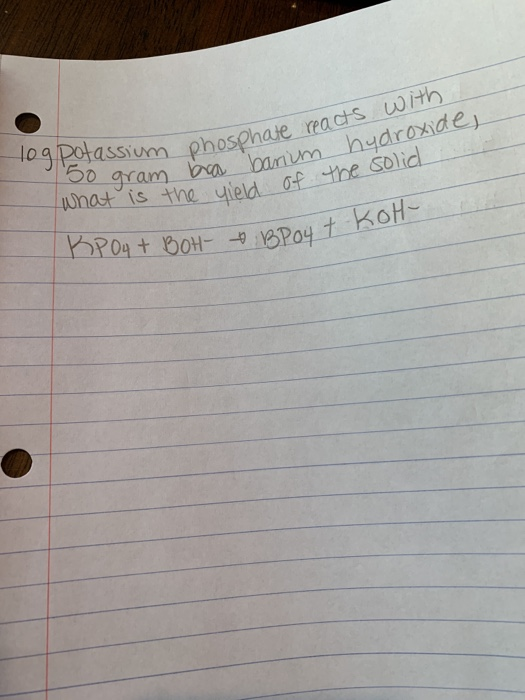 10g potassium phosphate reacts with
50 gram barium hydroxide,
what is the yield of the solid
KPO4 + BOH- → BPO4 + KOH-